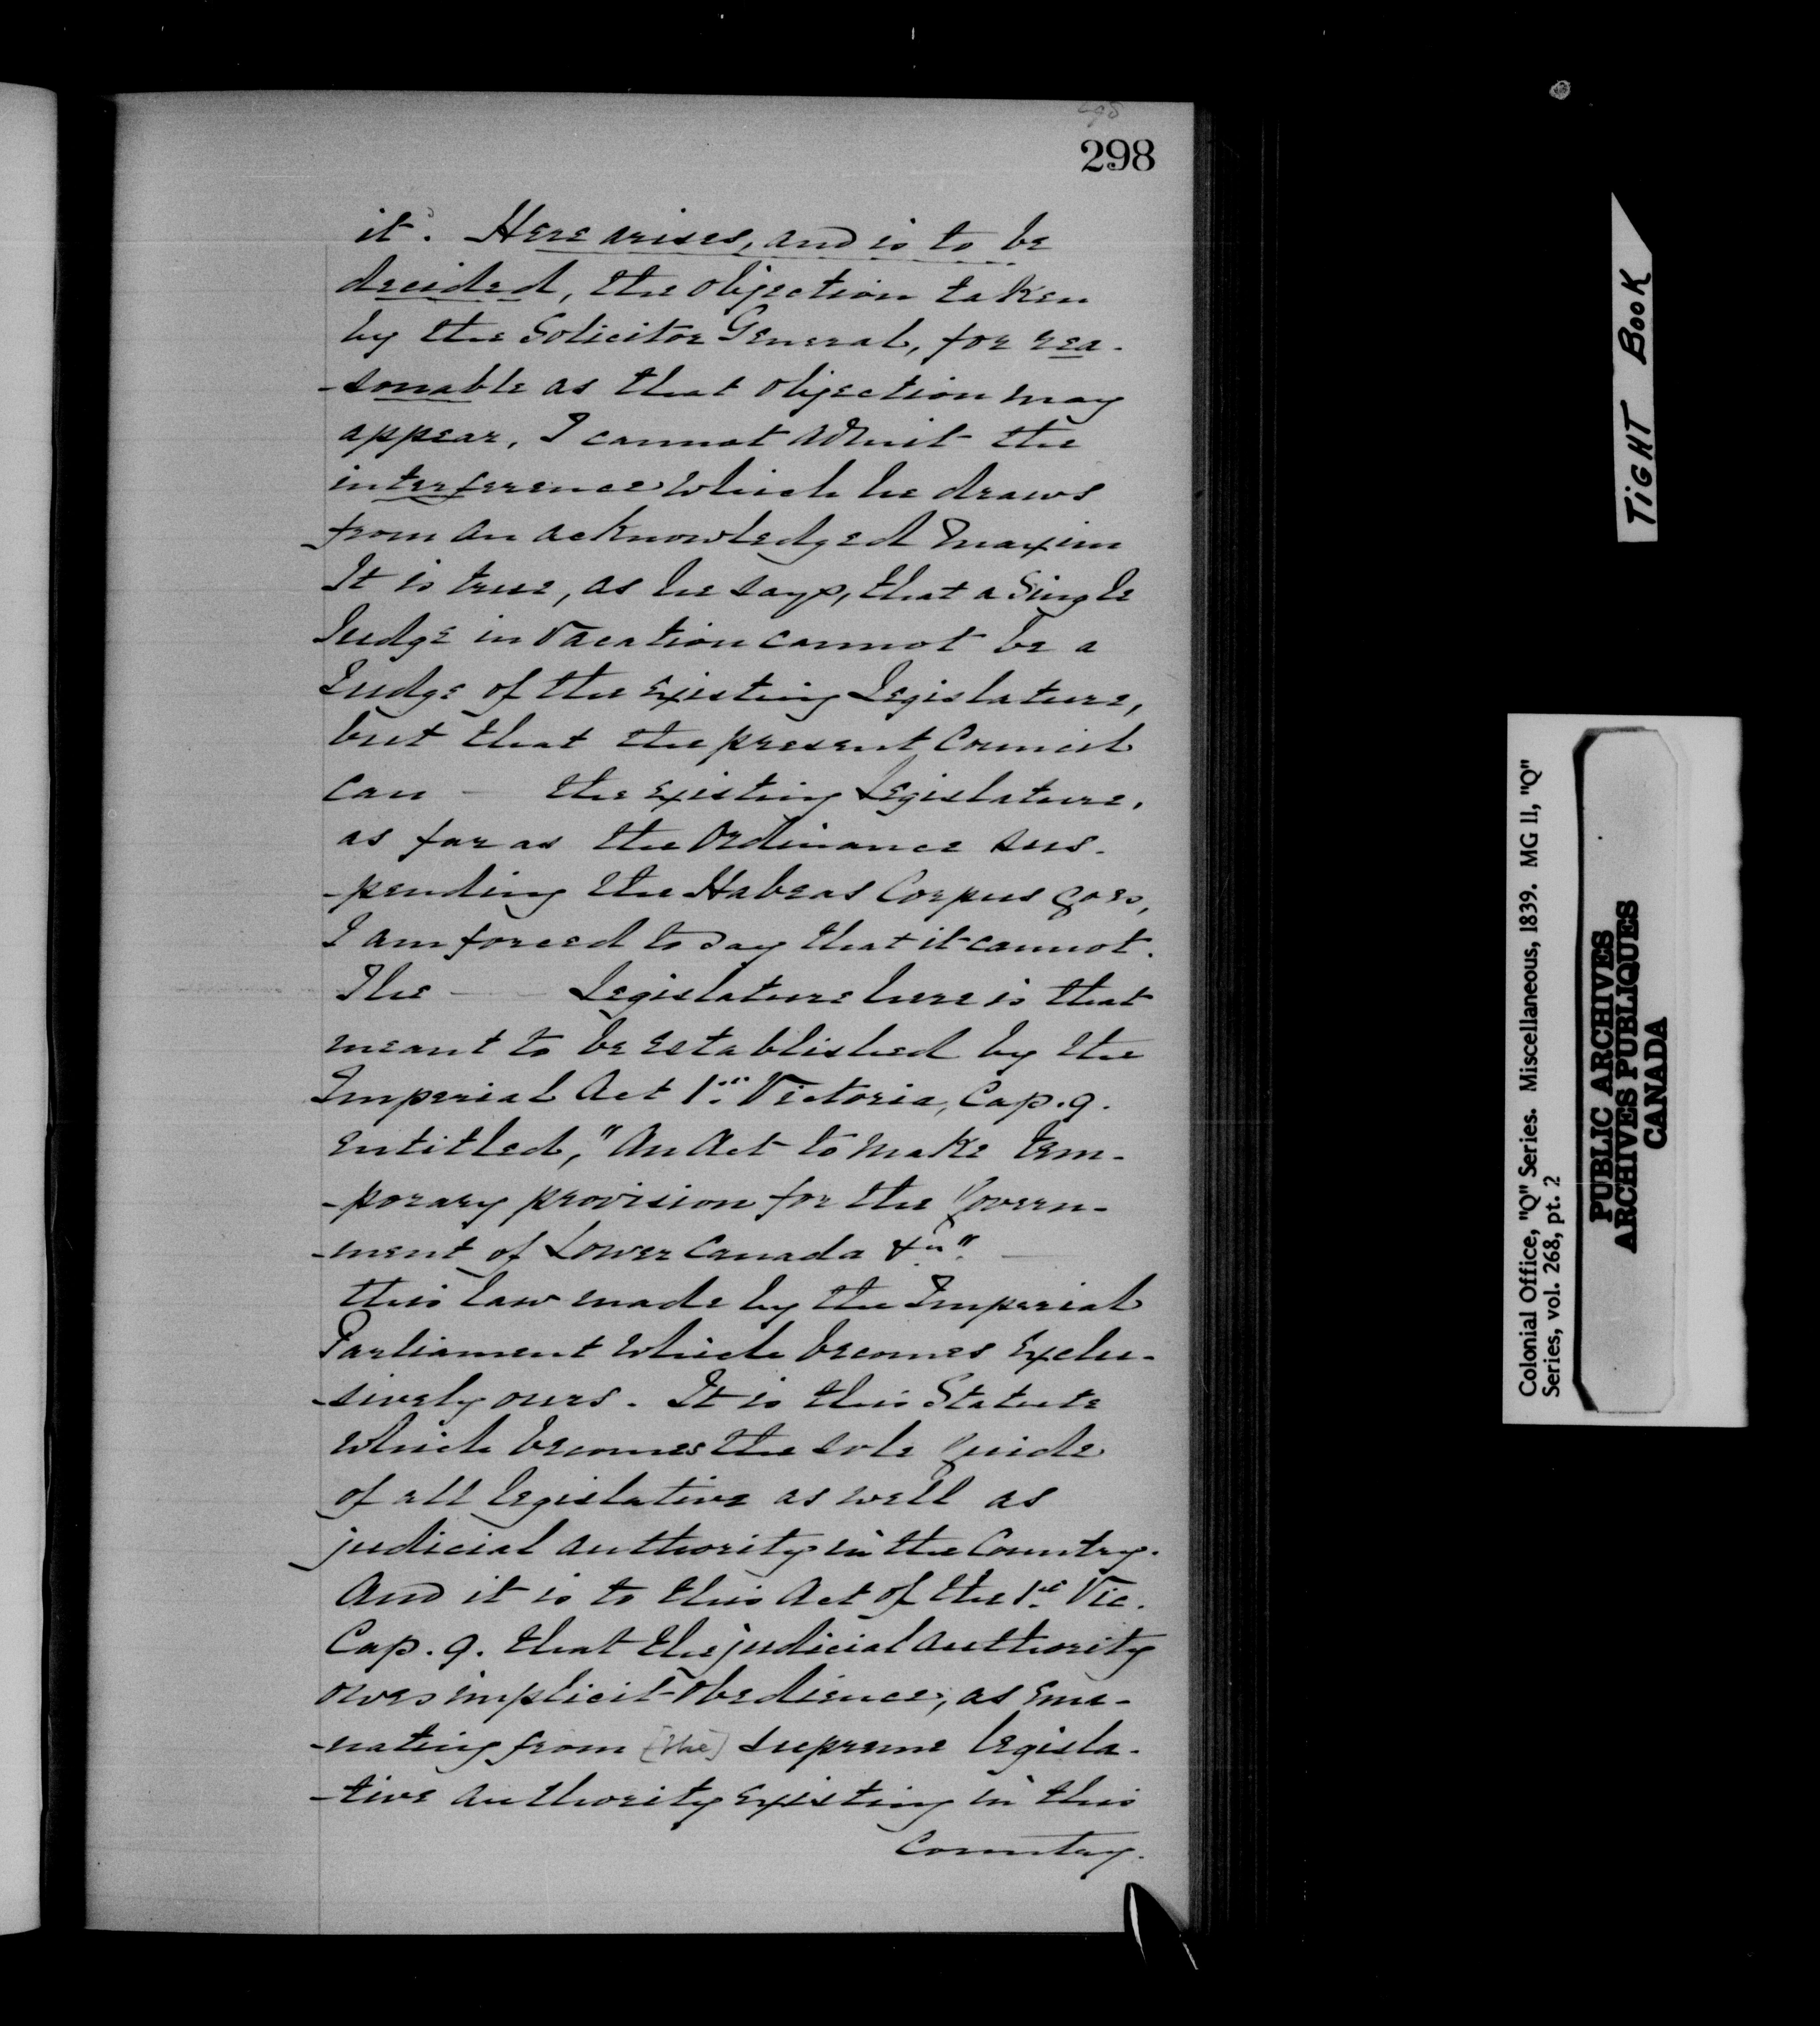 298
it. Here arises, and is to be
decided, the objection taken
by the Solicitor General, for rea-
-sonable as that objection may
appear, I cannot admit the
interference which he draws
from an acknowledged maxim
It is true, as he says, that a Single
Judge in Vacation cannot be a
Judge of the existing Legislature,
but that the present Council
can — the existing Legislature,
as far as the Ordinance sus-
-pending the Habeas Corpus goes,
I am forced to say that it cannot.
The — Legislature here is that
meant to be established by the
Imperial Act 1st Victoria, Cap. 9.
entitled, "An Act to make tem-
-porary provision for the Govern-
-ment of Lower Canada &c."
this law made by the Imperial
Parliament which becomes exclu-
-sively ours. It is this Statute
which becomes the sole guide
of all legislative as well as
judicial authority in the Country.
And it is to this Act of the 1st Vic.
Cap. 9. that the judicial authority
owes implicit obedience, as ema-
-nating from [the] supreme legisla-
-tive authority existing in this
Country.
TIGHT BOOK
Colonial Office, "Q" Series. Miscellaneous, 1839. MG 11, "Q"
Series, vol. 268, pt. 2
PUBLIC ARCHIVES
ARCHIVES PUBLIQUES
CANADA